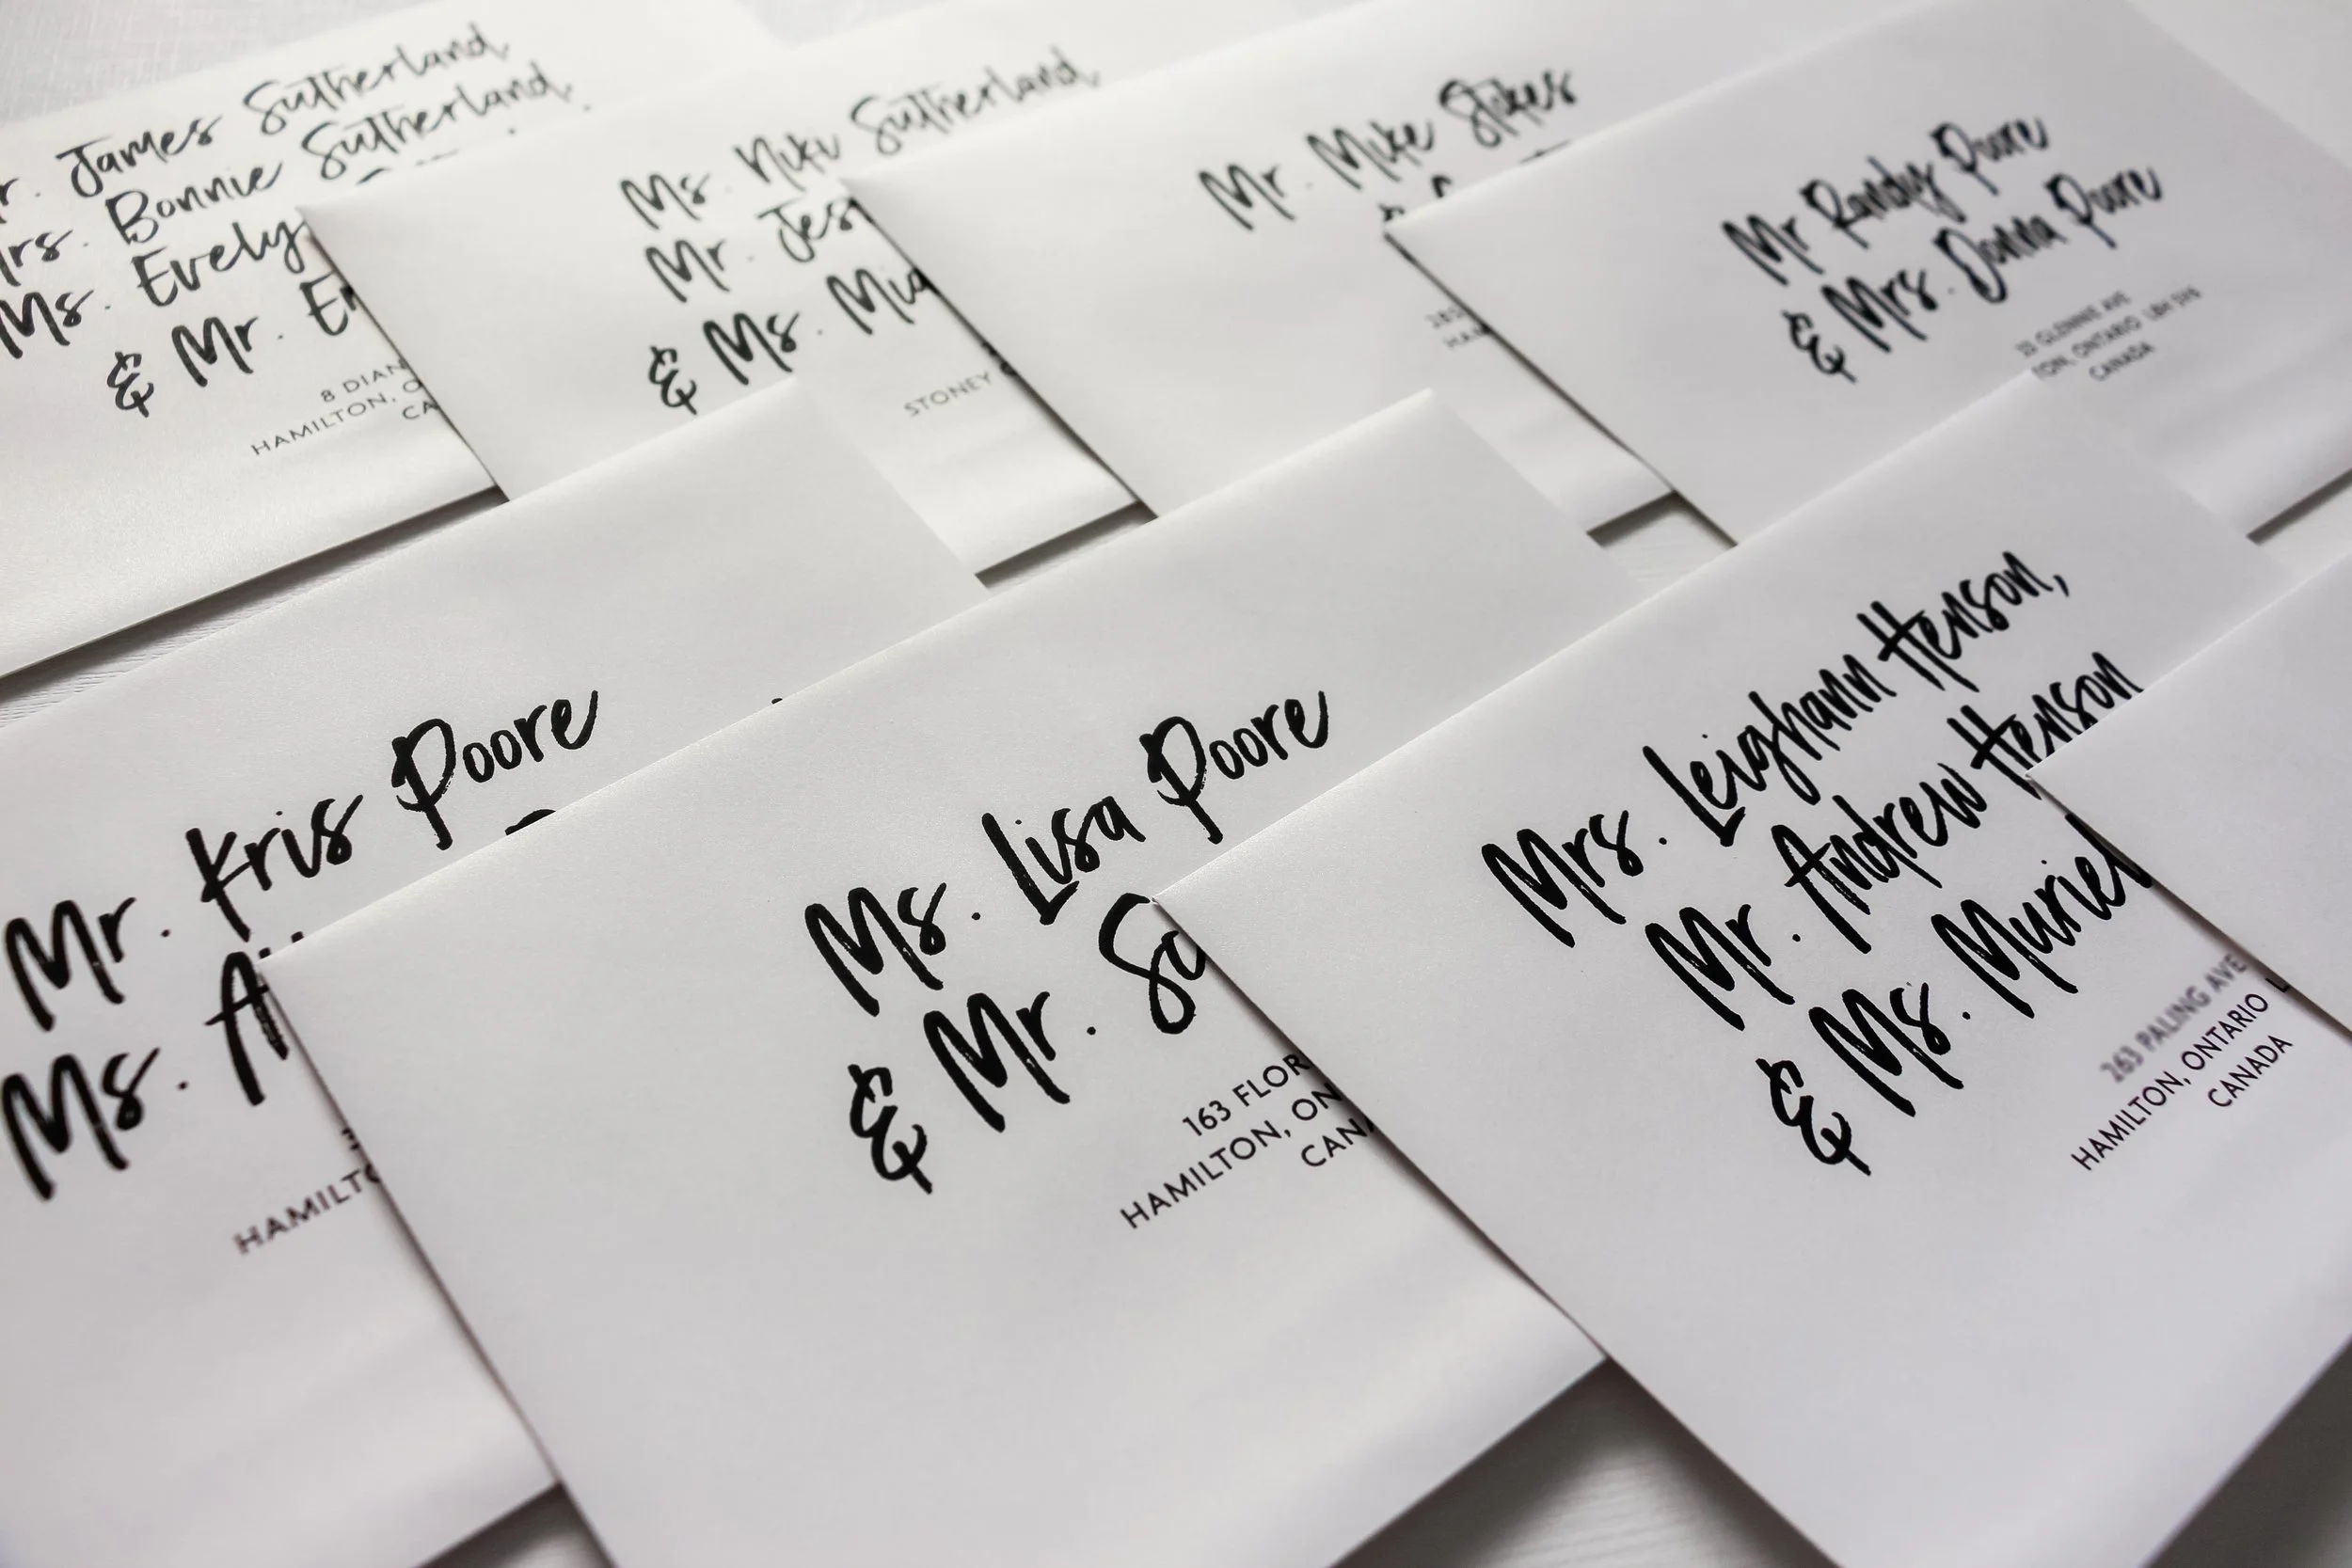 James Sutherland
Bonnie Sutherland,
Ms. Evely
& Mr. Er
8 DIAN
HAMILTON, O
CA
Ms. Niki Sutherland
Mr. Jes
& Ms. Mia
STONEY
Mr. Mike Stokes
HAM
Mr Randy Poore
& Mrs. Donna Poore
GLENNIE AVE
ONTARIO
CANADA
Mr. Kris Poore
Ms.
HAMILTO
Ms. Lisa Poore
& Mr. Sc
163 FLOR
HAMILTON, ON
CANA
Mrs. Leighann Henson,
Mr. Andrew Henson
& Ms. Muriel
263 PALING AVE
HAMILTON, ONTARIO L
CANADA